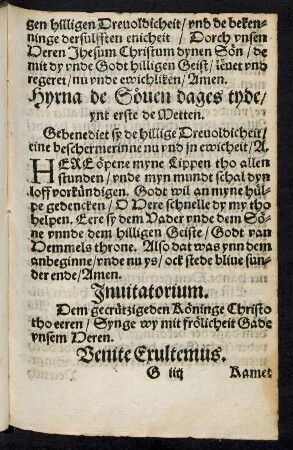 gen hilligen Dreuoldicheit/ vnd de beken-
ninge dersulfften enicheit / Dorch vnsen
Heren Jhesum Christum dynen Sön/ de
mit dy vnde Godt hilligen Geist/ leuet vnd
regeret/ nu vnde ewichliken/ Amen.
Hyrna de Söuen dages tyde/
ynt erste de Metten.
Gebenediet sy de hillige Dreuoldicheit/
eine beschermerinne nu vnd jn ewicheit/ A.
HERE öpene myne Lippen tho allen
stunden/ vnde myn mundt schal dyn
loff vorkündigen. Godt wil an myne hül-
pe gedencken/ O Here schnelle dy my tho
helpen. Eere sy dem Vader vnde dem Sö-
ne vnnde dem hilligen Geiste/ Godt van
Hemmels throne. Also dat was ynn dem
anbeginne/ vnde nu ys/ ock stede bliue sun-
der ende/ Amen.
Jnuitatorium.
Dem gecrützigeden Köninge Christo
tho eeren/ Synge wy mit frölicheit Gade
vnsem Heren.
Venite Exultemus.
G iiij Kamet